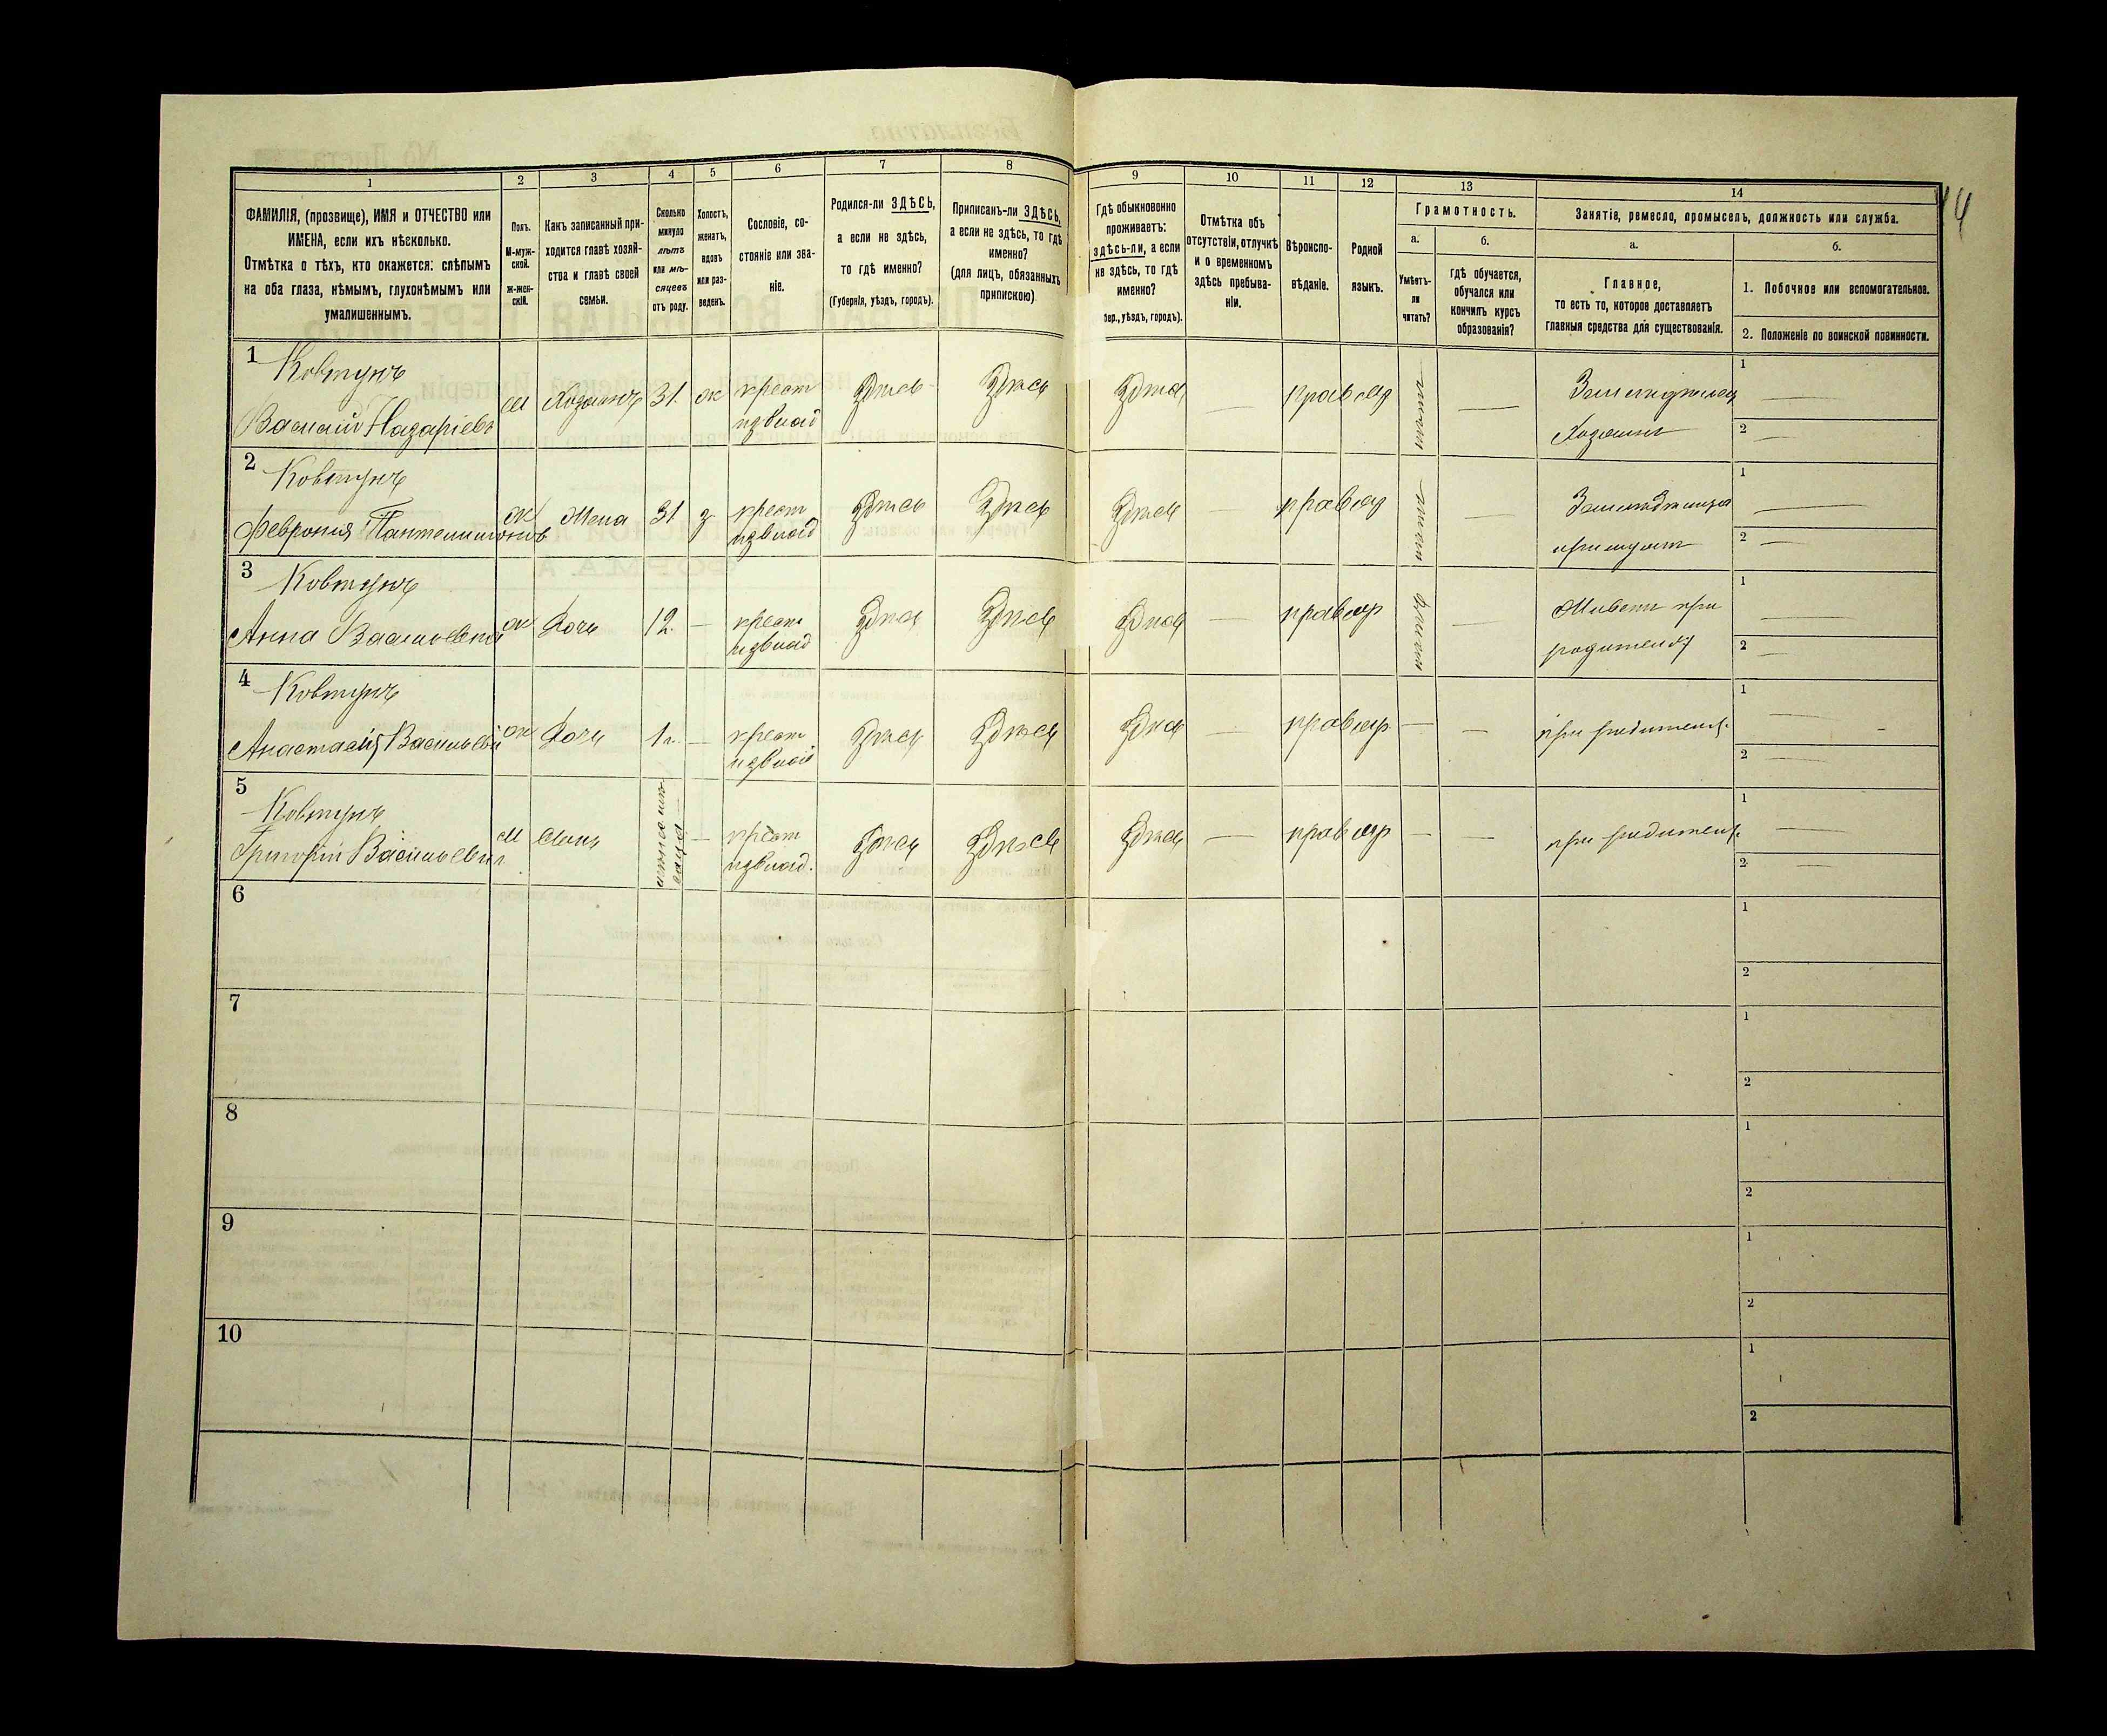 1 2 3 4 5 6 7 8 9 10 11 12 13 14
ФАМИЛІЯ, (прозвище), ИМЯ и ОТЧЕСТВО или
ИМЕНА, если ихъ нѣсколько.
Отмѣтка о тѣхъ, кто окажется: слѣпымъ
на оба глаза, нѣмымъ, глухонѣмымъ или
умалишеннымъ.
Полъ.
М-муж-
ской.
Ж-жен-
скій.
Какъ записанный при-
ходится главѣ хозяй-
ства и главѣ своей
семьи.
Сколько
минуло
лѣтъ
или мѣ-
сяцевъ
отъ роду.
Холостъ,
женатъ,
вдовъ
или раз-
веденъ.
Сословіе, со-
стояніе или зва-
ніе.
Родился-ли ЗДѢСЬ,
а если не здѣсь,
то гдѣ именно?
(Губернія, уѣздъ, городъ).
Приписанъ-ли ЗДѢСЬ,
а если не здѣсь, то гдѣ
именно?
(для лицъ, обязанныхъ
припискою)
Гдѣ обыкновенно
проживаетъ:
здѣсь-ли, а если
не здѣсь, то гдѣ
именно?
бер., уѣздъ, городъ).
Отмѣтка объ
отсутствіи, отлучкѣ
и о временномъ
здѣсь пребыва-
ніи.
Вѣроиспо-
вѣданіе.
Родной
языкъ.
Грамотность.
а.
Умѣетъ-
ли
читать?
б.
гдѣ обучается,
обучался или
кончилъ курсъ
образованія?
Занятіе, ремесло, промыселъ, должность или служба.
а.
Главное,
то есть то, которое доставляетъ
главныя средства для существованія.
б.
1. Побочное или вспомогательное.
2. Положеніе по воинской повинности.
14
1 Ковтунъ
Василій Назаріевъ
м Хозяинъ 31. ж крест
Здѣсь Здѣсь Здѣсь — правос — 1 —
Хозяинъ 2 —
2 Ковтунъ
Феврония
ж Жена 31 з крест
Здѣсь Здѣсь Здѣсь — правос — 1 —
2 —
3 Ковтунъ
Анна Васильевна
ж Дочь 12. — крест
Здѣсь Здѣсь Здѣсь — правос — Живетъ при 1 —
родителяхъ 2 —
4 Ковтунъ
Анастасія
ж Дочь 1 г. — крест
Здѣсь Здѣсь Здѣсь — правос — — при родителях. 1 —
2 —
5 Ковтунъ
Григорій Васильевич
м Сынъ — крест
Здѣсь Здѣсь Здѣсь — правос — — при родителях. 1 —
2 —
6 1
2
7 1
2
8 1
2
9 1
2
10 1
2